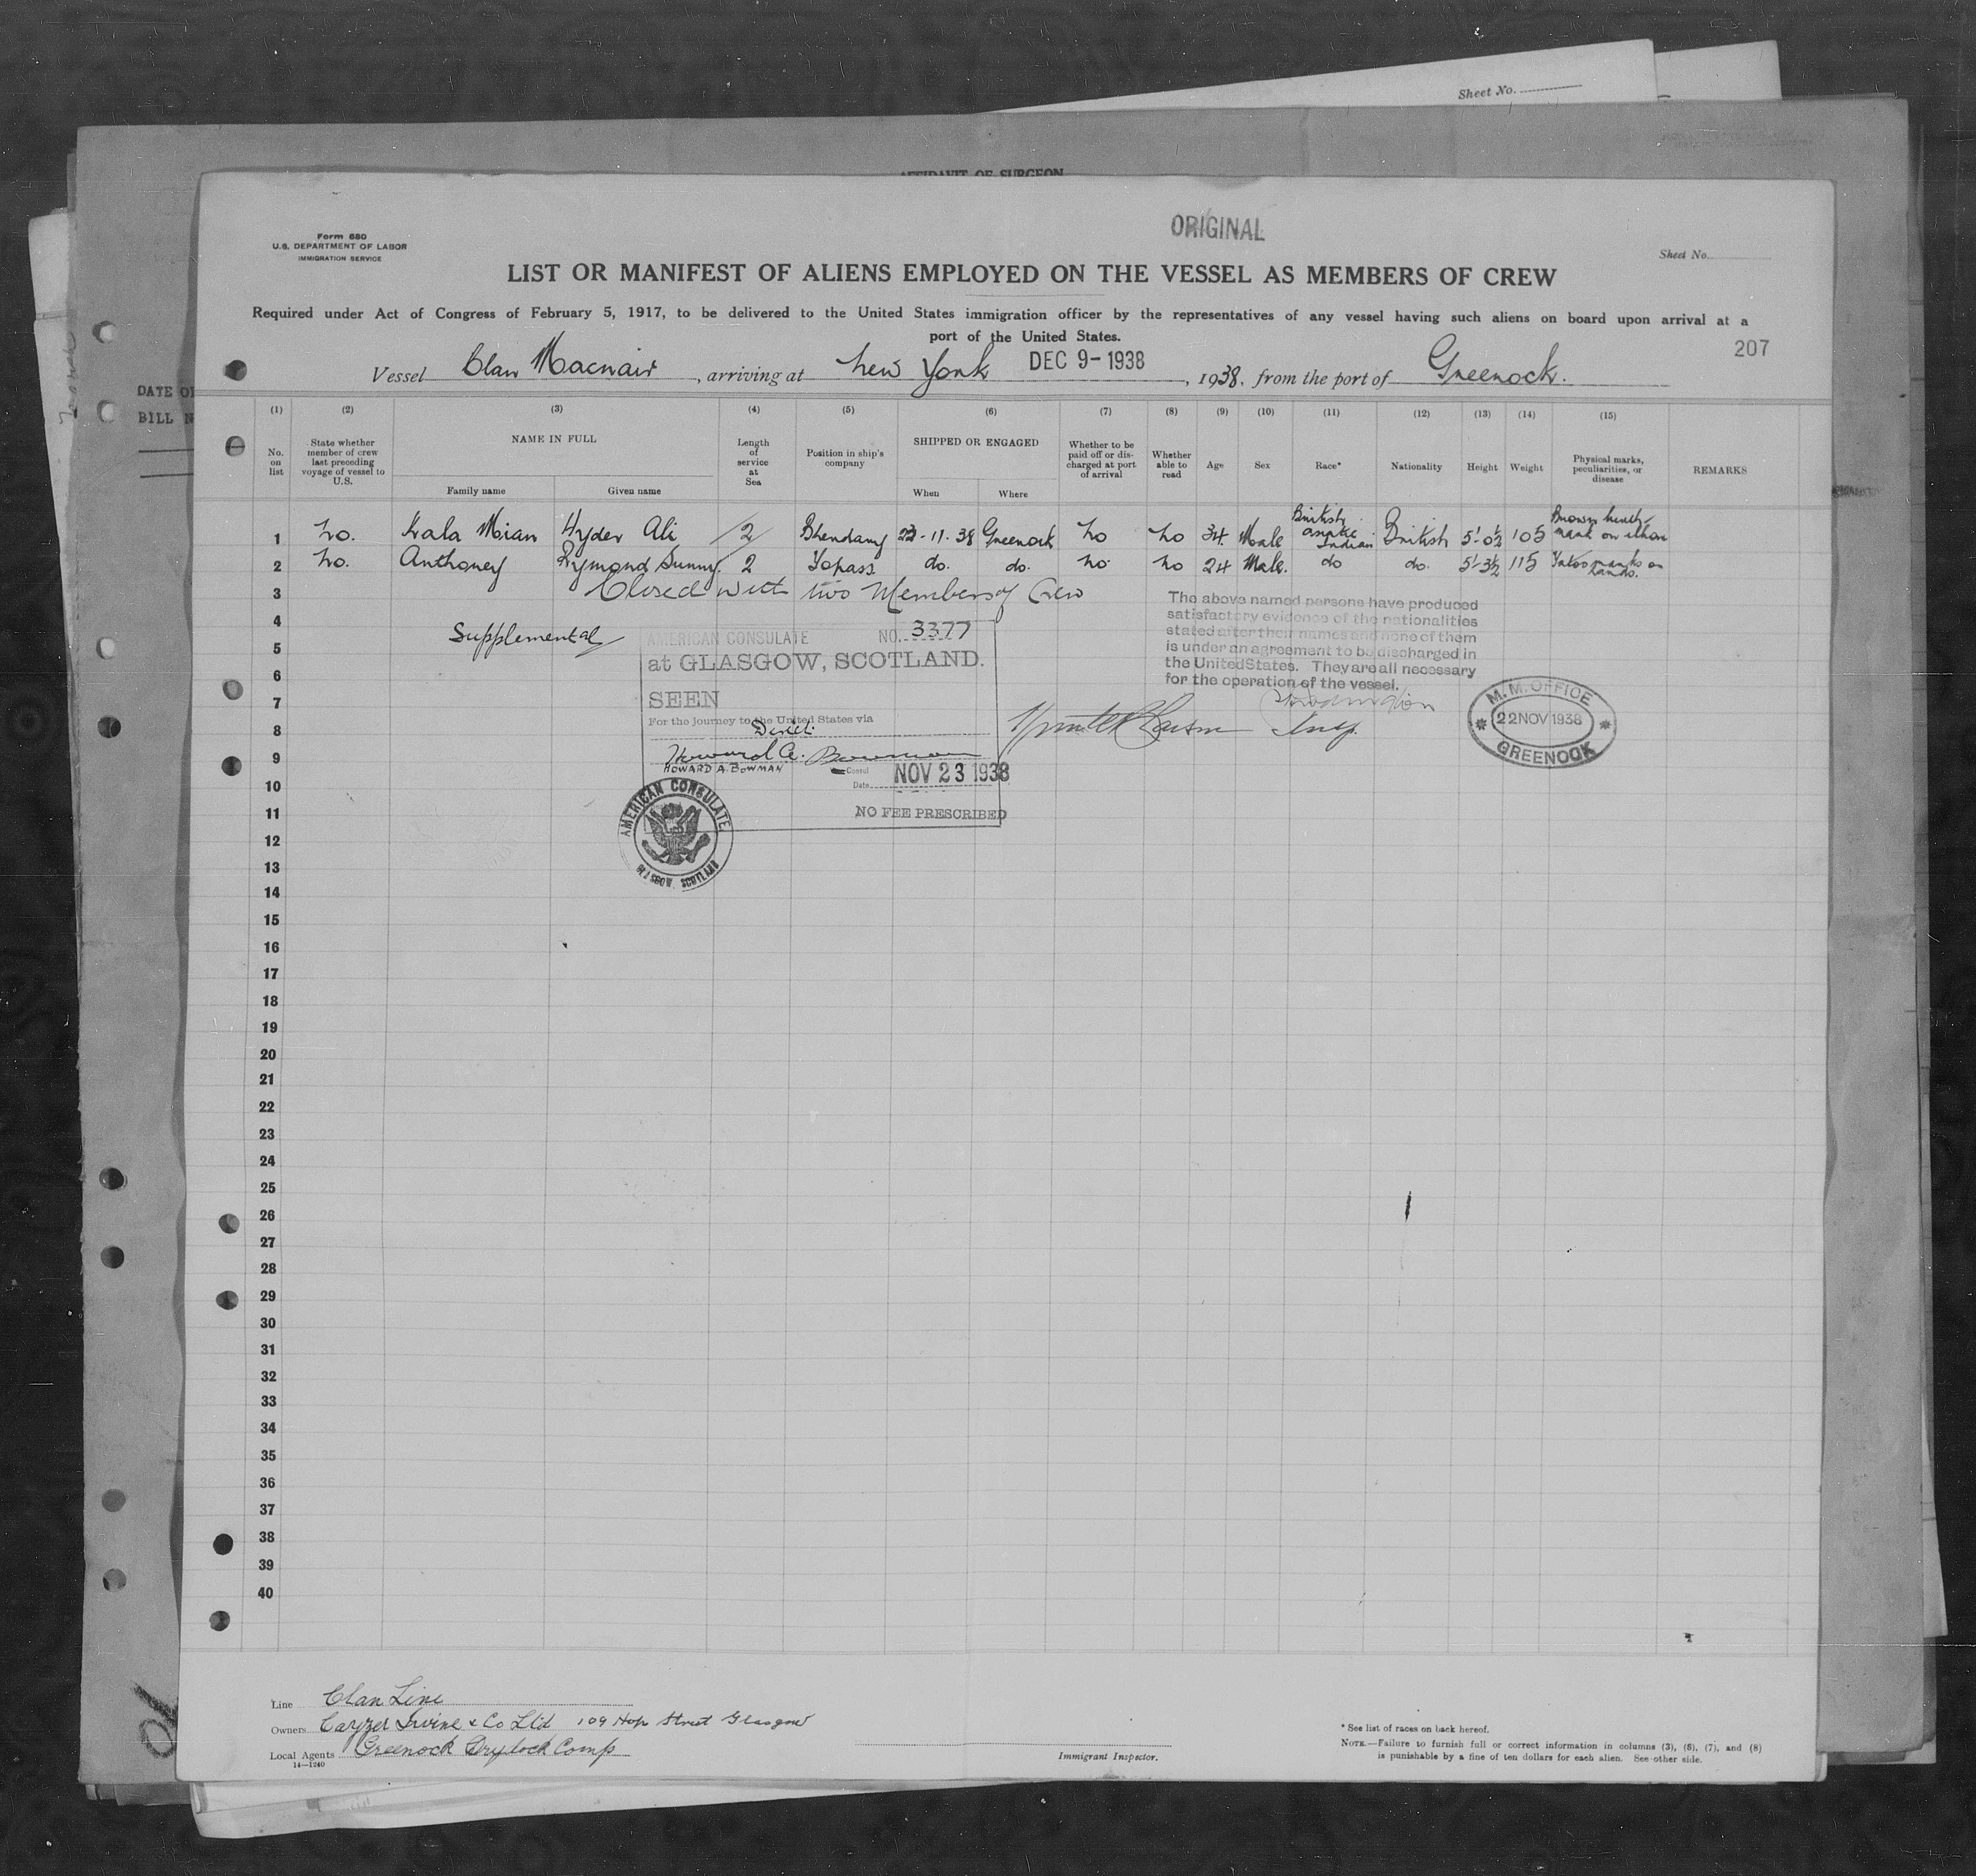 Sheet No.
AFFIDAVIT OF SURGEON
ORIGINAL
Form 680
U.S. DEPARTMENT OF LABOR
IMMIGRATION SERVICE
Sheet No.
LIST OR MANIFEST OF ALIENS EMPLOYED ON THE VESSEL AS MEMBERS OF CREW
Required under Act of Congress of February 5, 1917, to be delivered to the United States immigration officer by the representatives of any vessel having such aliens on board upon arrival at a
port of the United States.
207
Vessel Clan Macnair, arriving at New York DEC 9-1938, 1938, from the port of Greenock.
DATE OF
BILL N
(1) (2) (3) (4) (5) (6) (7) (8) (9) (10) (11) (12) (13) (14) (15)
No. on list
State whether member of crew last preceding voyage of vessel to U.S.
NAME IN FULL
Family name
Given name
Length of service at Sea
Position in ship's company
SHIPPED OR ENGAGED
When
Where
Whether to be paid off or discharged at port of arrival
Whether able to read
Age
Sex
Race*
Nationality
Height
Weight
Physical marks, peculiarities, or disease
REMARKS
1 No. Kala Mian Hyder Ali 2 Bhandary 23-11-38 Greenock No No 34 Male British Asiatic Indian British 5'-0½ 105 Brown birth-mark on
2 No. Anthoney Rymond Sunny 2 Topass do. do. No. No 24 Male. do do. 5'-3½ 115 marks on hands.
3 Closed with two Members of Crew
4
Supplemental
5
6
7
8
9
10
11
12
13
14
15
16
17
18
19
20
21
22
23
24
25
26
27
28
29
30
31
32
33
34
35
36
37
38
39
40
AMERICAN CONSULATE NO. 3377
at GLASGOW, SCOTLAND.
SEEN
For the journey to the United States via
Direct
Howard A. Bowman
HOWARD A. BOWMAN
Consul
Date NOV 23 1938
NO FEE PRESCRIBED
AMERICAN CONSULATE
GLASGOW, SCOTLAND
The above named persons have produced
satisfactory evidence of the nationalities
stated after their names and none of them
is under an agreement to be discharged in
the United States. They are all necessary
for the operation of the vessel.
M. M. OFFICE
22 NOV 1938
GREENOCK
Line Clan Line
Owners Cayzer Irvine & Co Ltd 109 Hope Street Glasgow
Local Agents Greenock Drydock Comp
14—1240
Immigrant Inspector.
* See list of races on back hereof.
NOTE.—Failure to furnish full or correct information in columns (3), (6), (7), and (8)
is punishable by a fine of ten dollars for each alien. See other side.